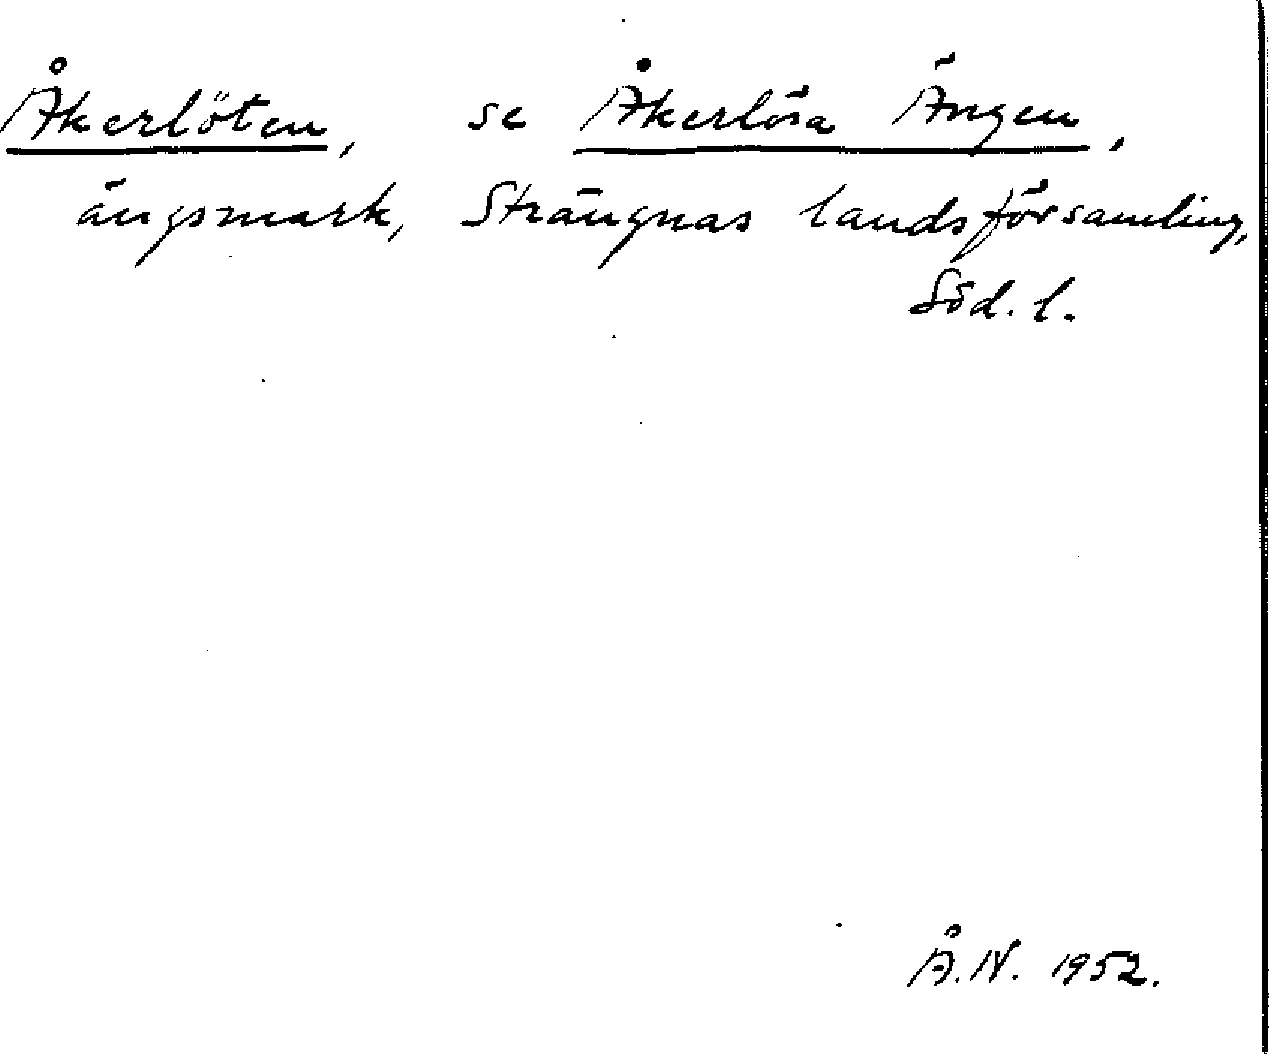 Åkerlöten, se Åkerlösa Ängen,
ängsmark, Strängnas landsförsamling,
Söd. l.
Å.N. 1952.